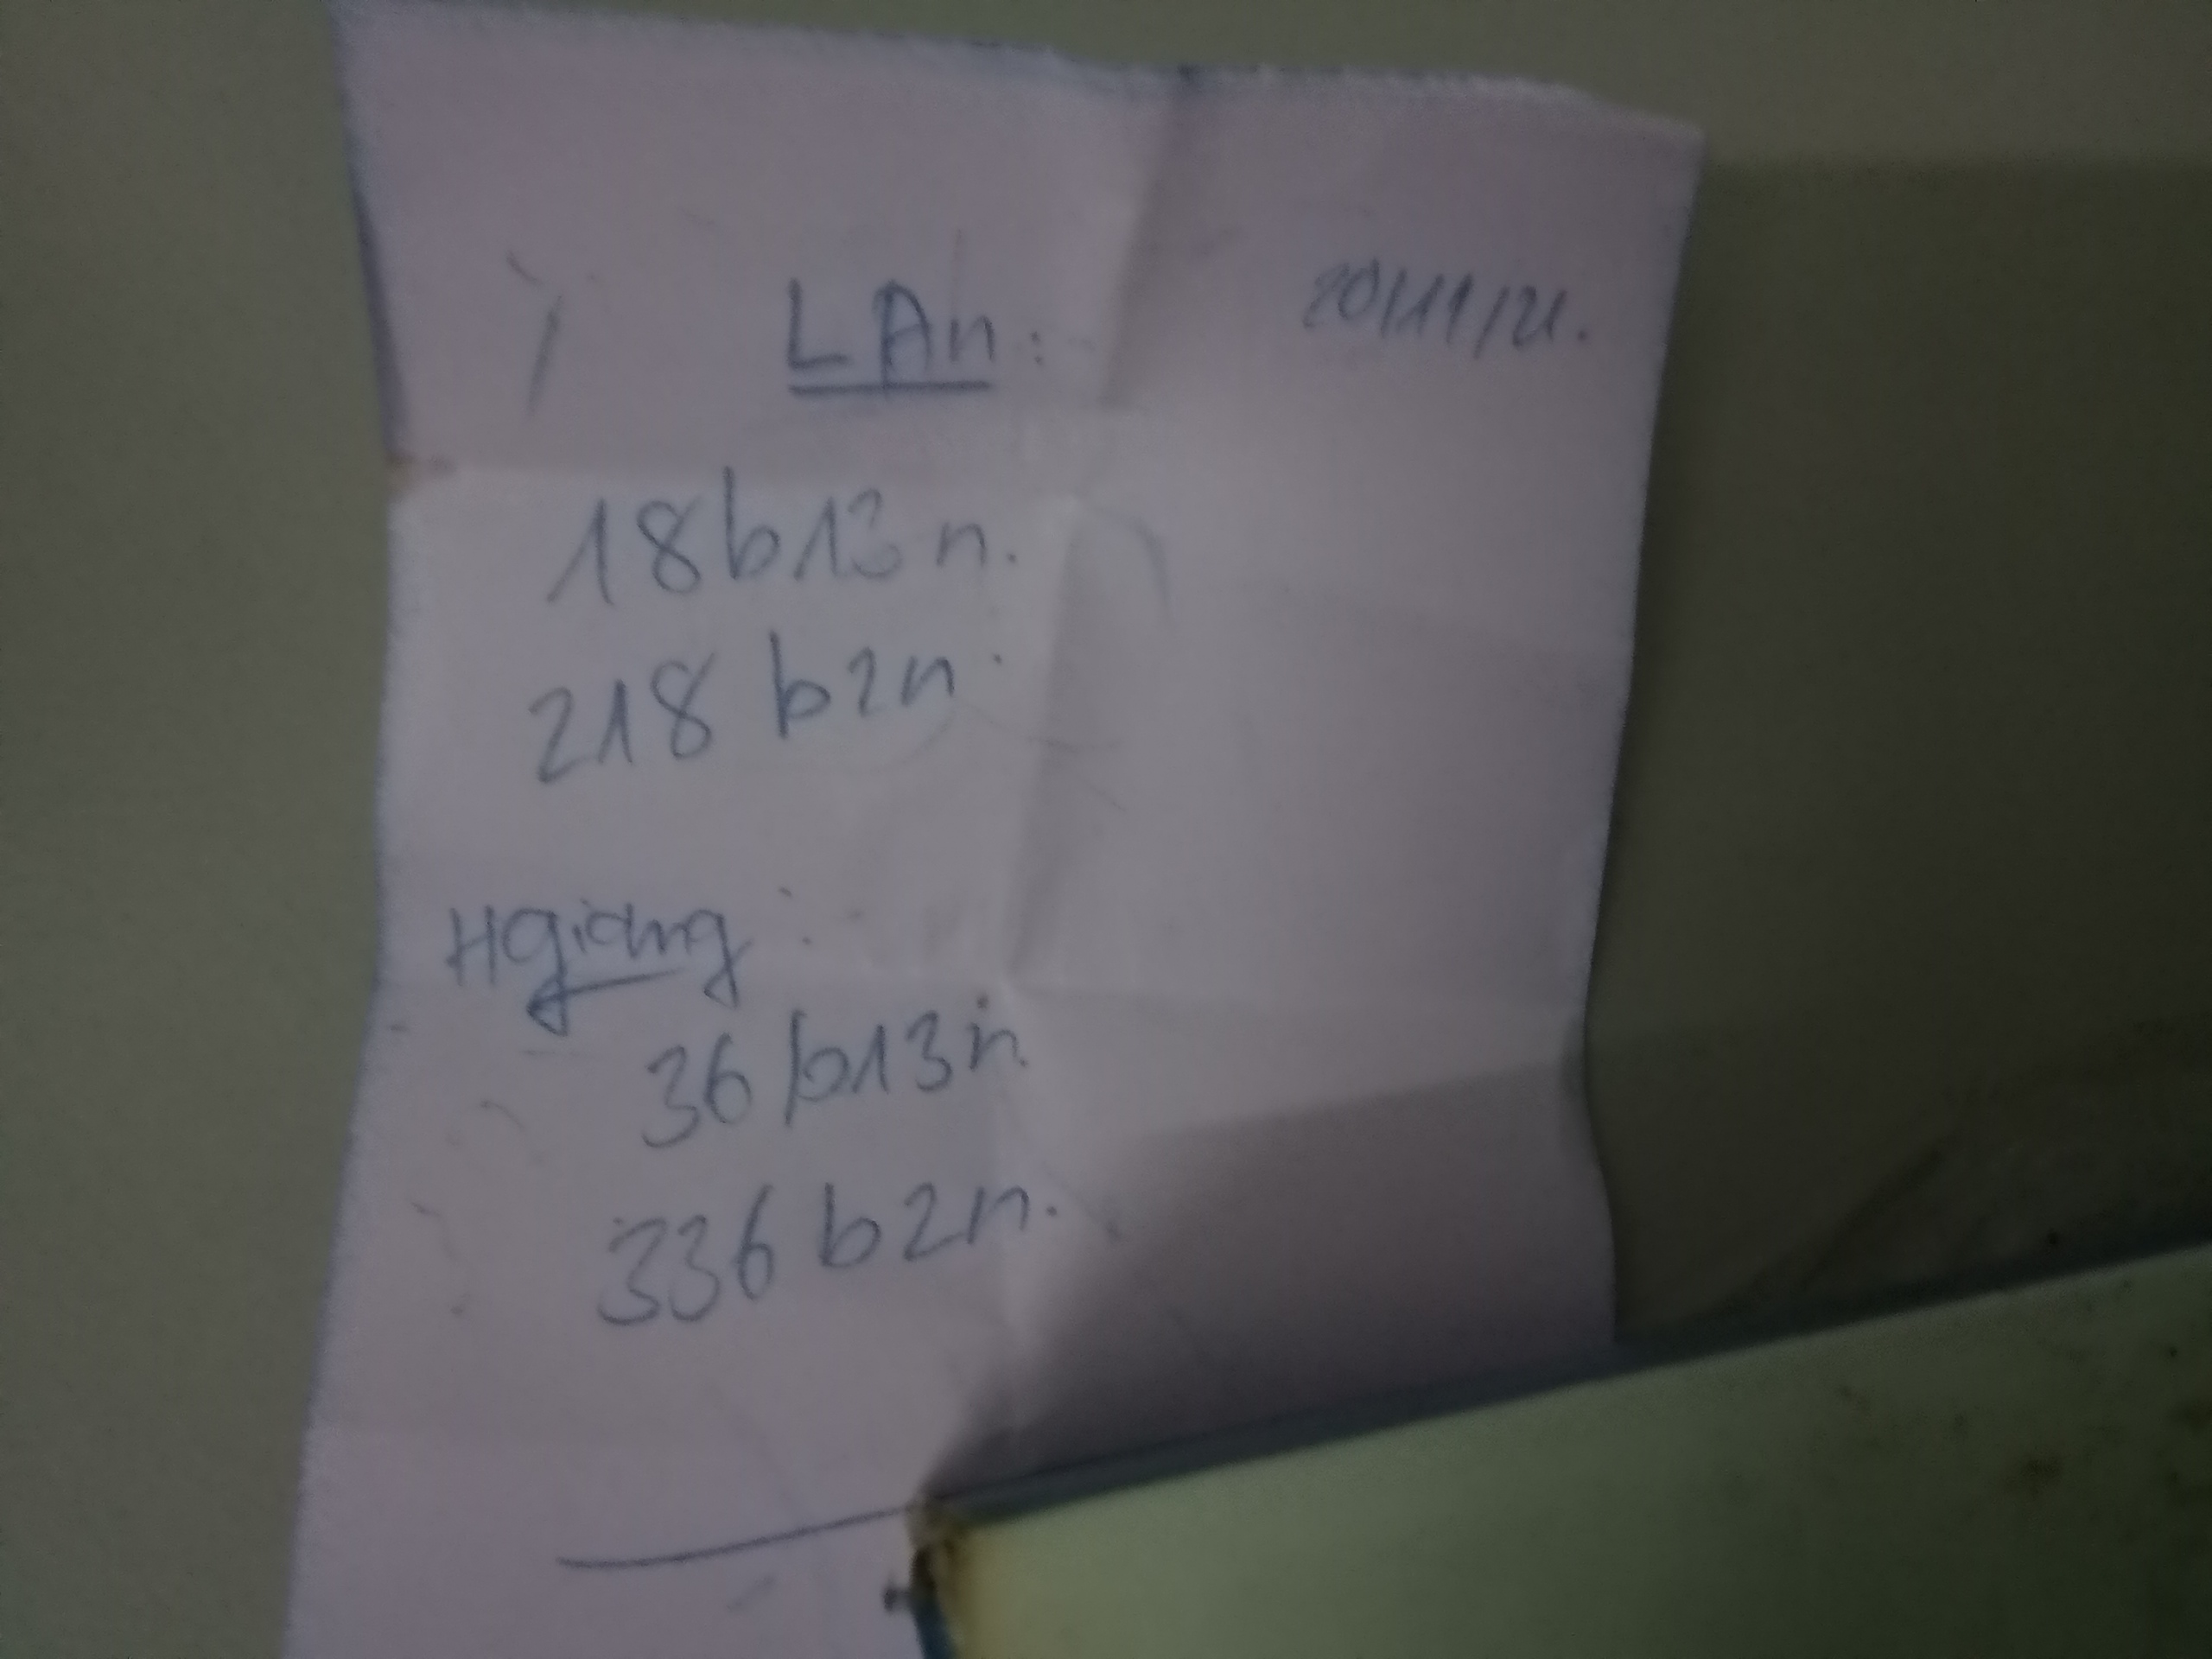 LAn: 20/11/21.
18b13n.
218 b2n.
HGiang:
36 b13n.
336 b2n.